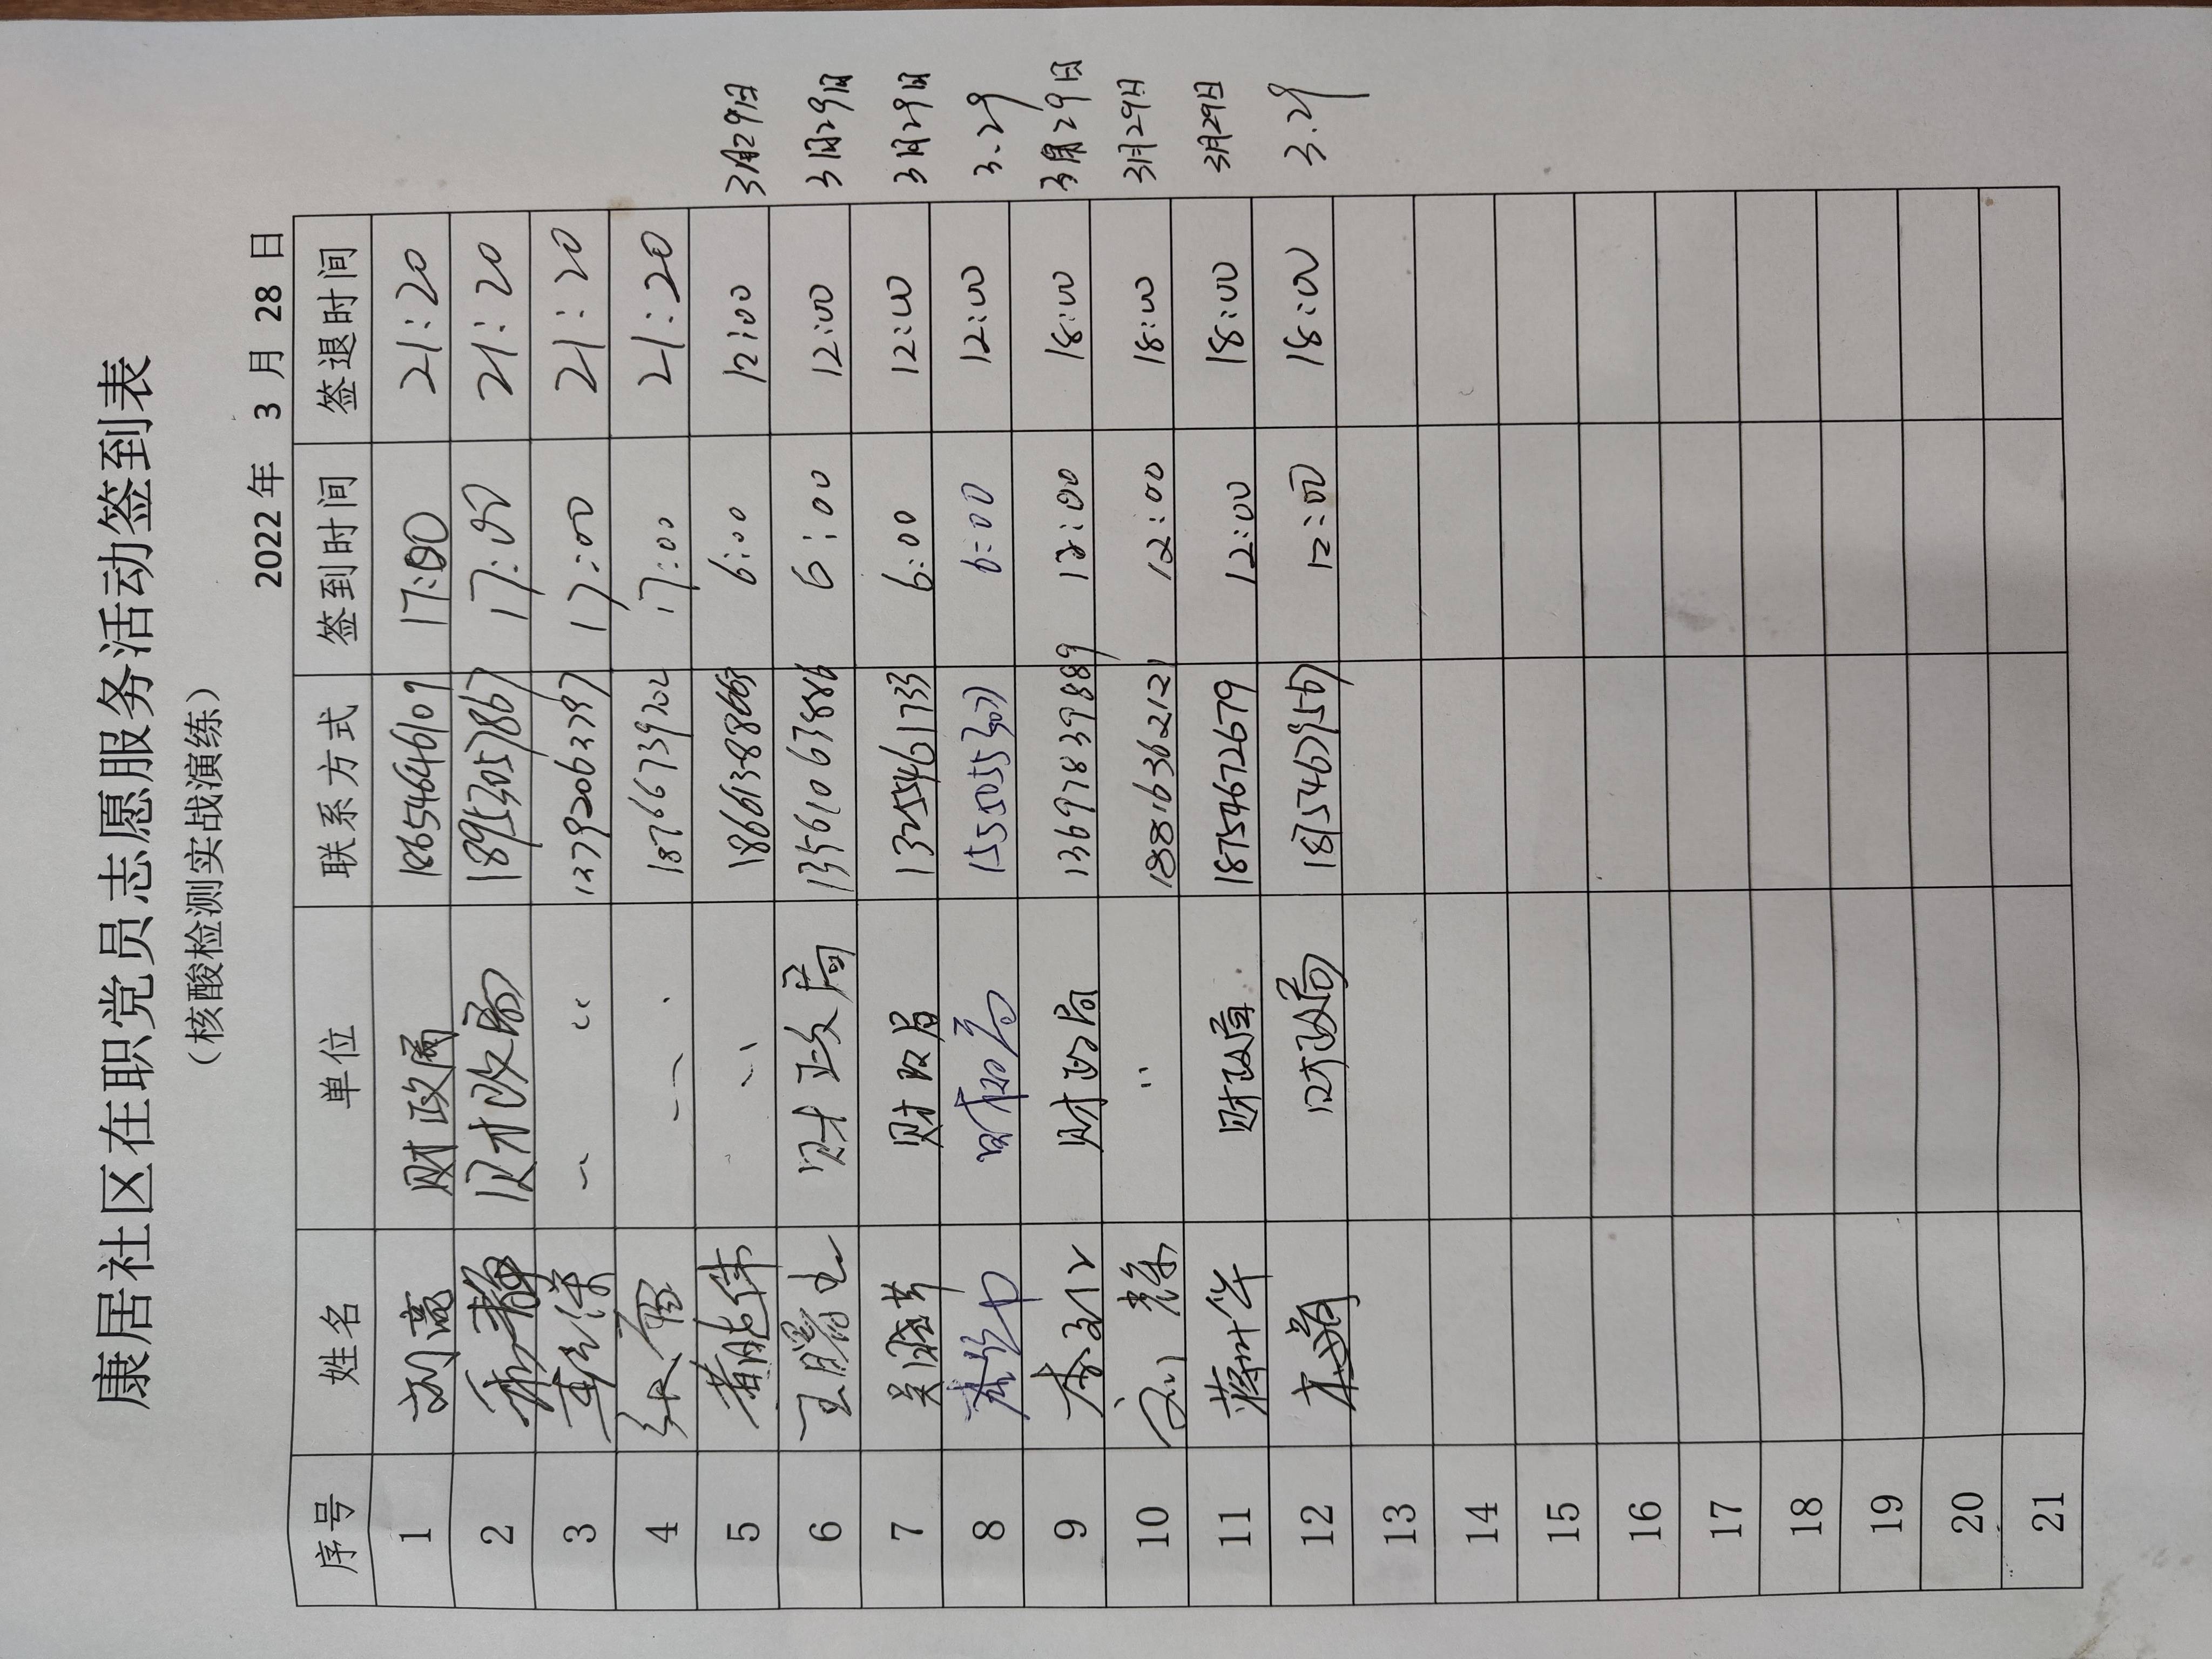 康居社区在职党员志愿服务活动签到表
（核酸检测实战演练）
2022 年 3 月 28 日
序号 姓名 单位 联系方式 签到时间 签退时间
1 刘亮 财政局 18654646109 17:00 21:20
2 财政局 17:00 21:20
3 〃 13792063797 17:00 21:20
4 〃 18766739202 17:00 21:20
5 〃 6:00 12:00 3月29日
6 王曙光 财政局 13561063886 6:00 12:00 3月29日
7 财政局 13254661733 6:00 12:00 3月29日
8 财政局 6:00 12:00 3.29
9 财政局 13697839889 12:00 18:00 3月29日
10 〃 18816362121 12:00 18:00 3月29日
11 蒋叶华 财政局 18754672679 12:00 18:00 3月29日
12 财政局 12:00 18:00 3.29
13
14
15
16
17
18
19
20
21